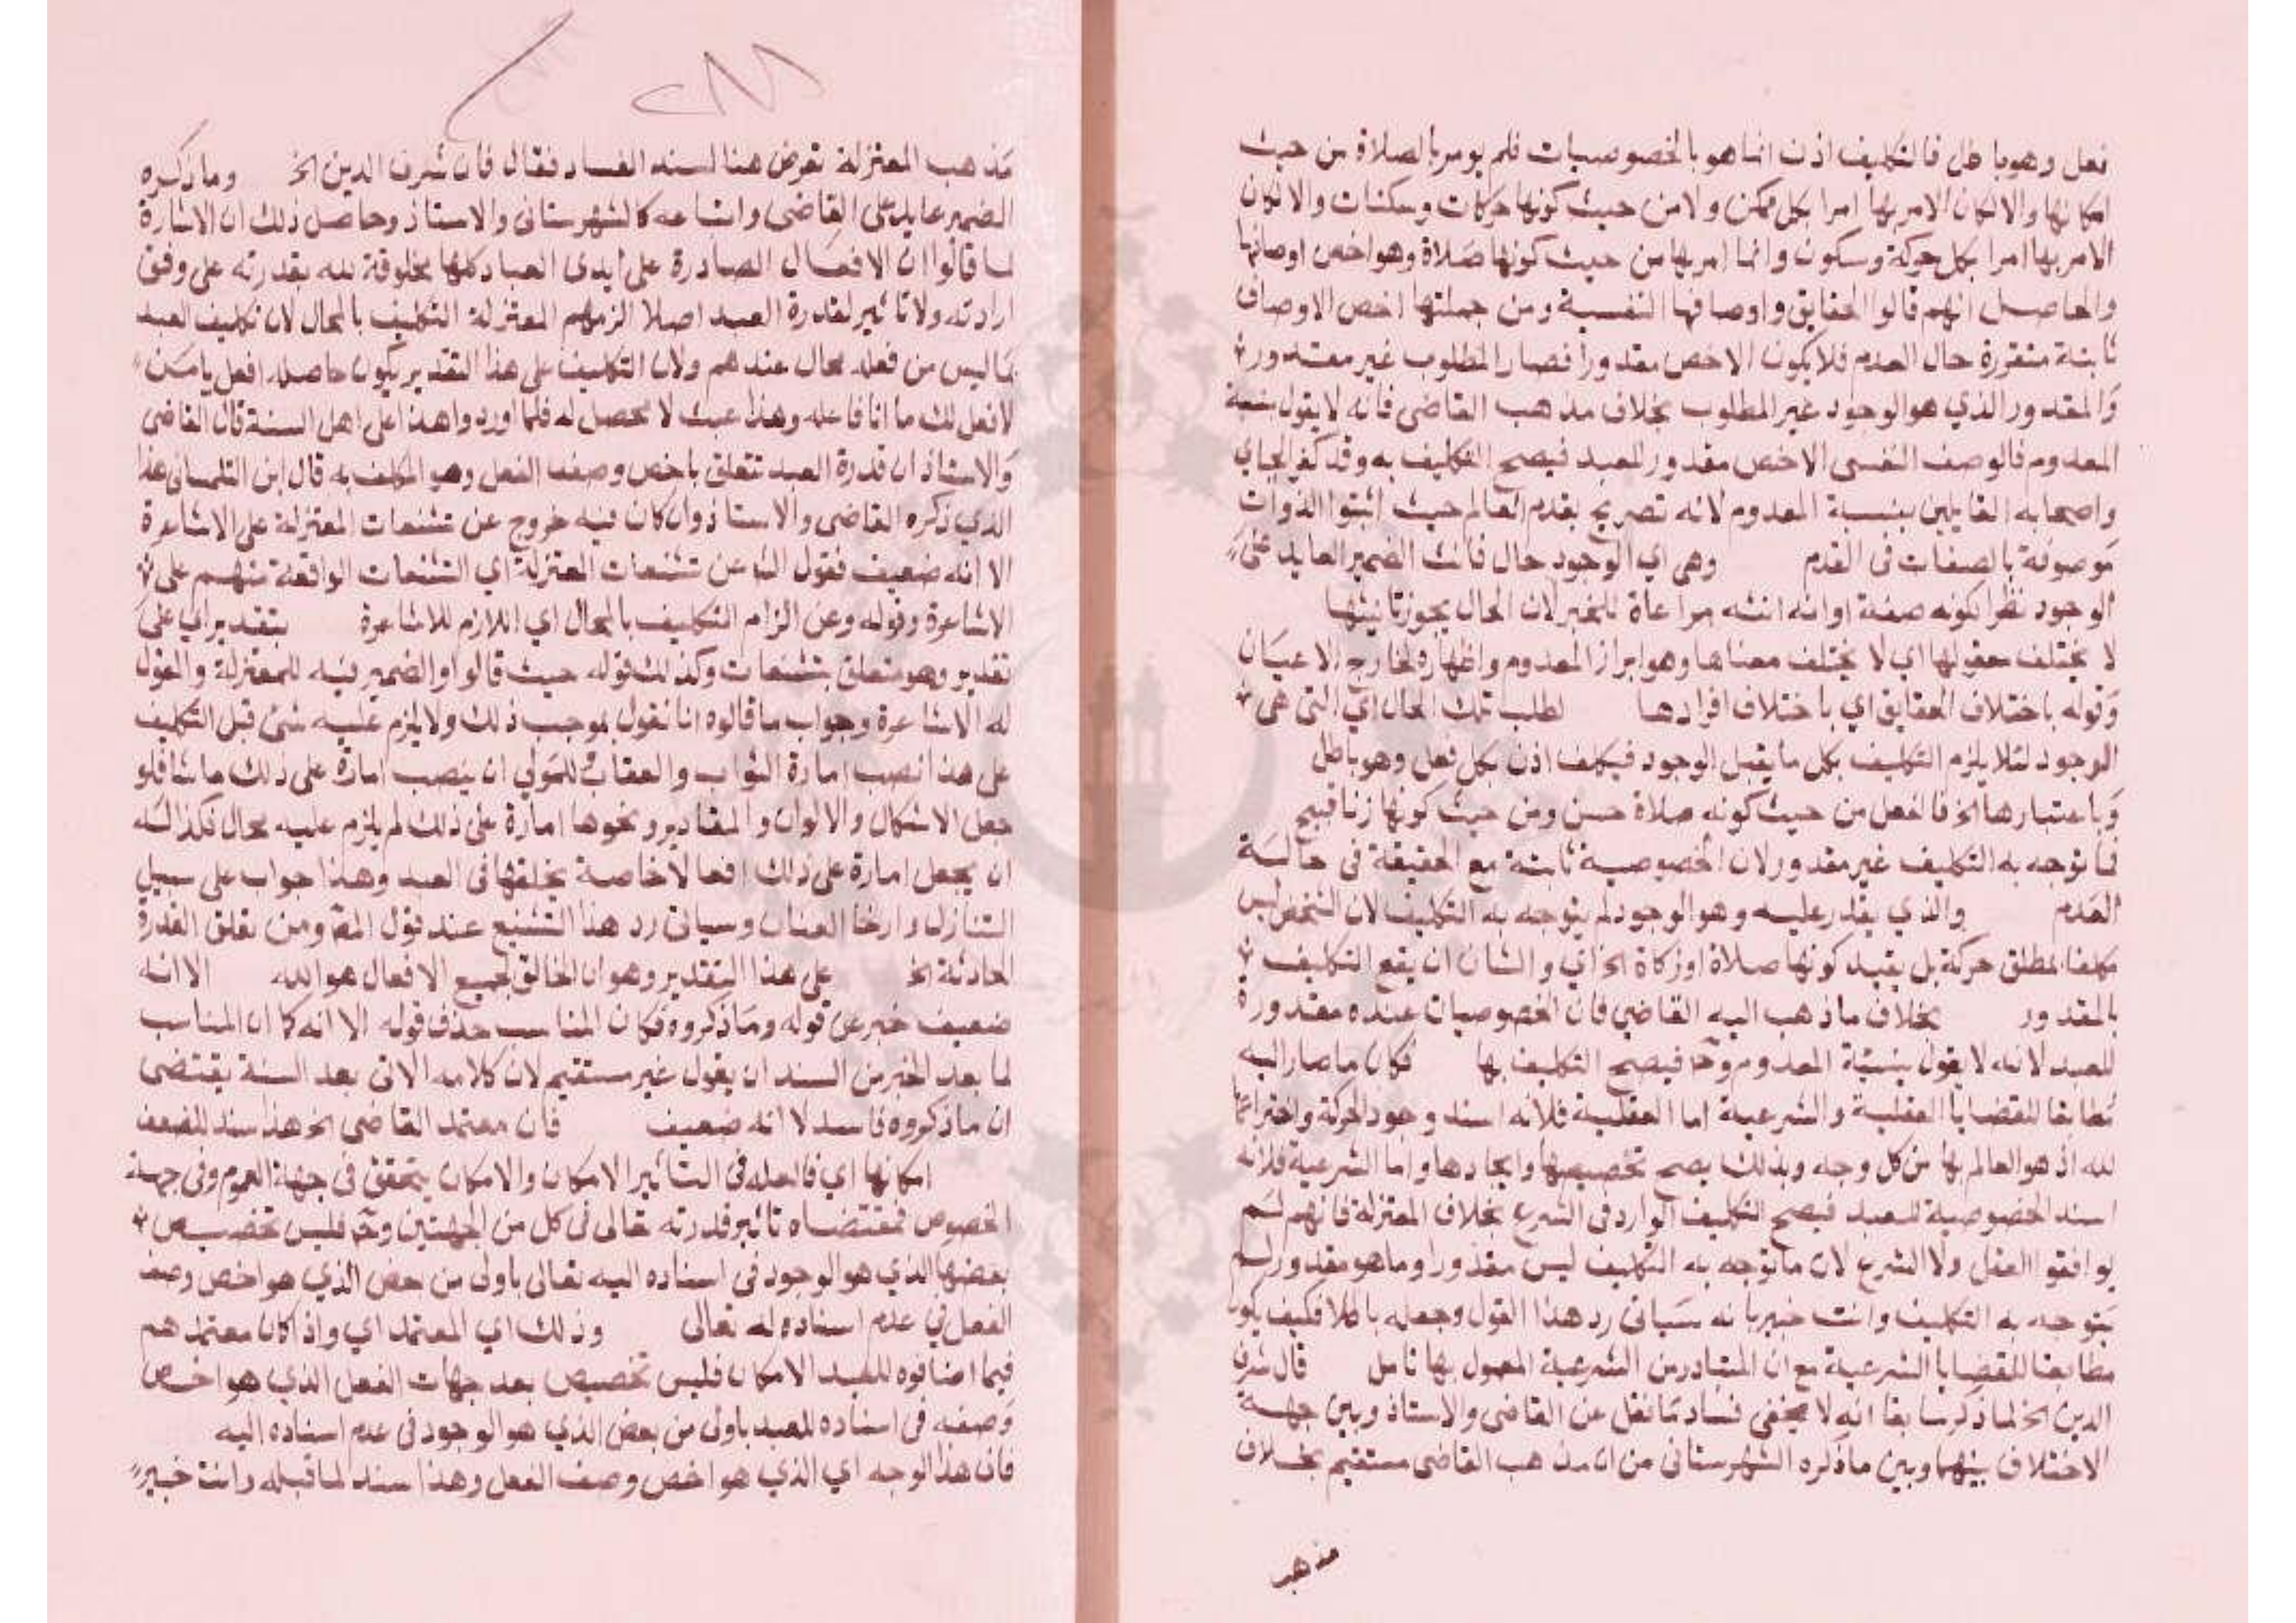 فعل وهو باطل فالتكليف اذن انما هو بالخصوصيات فلم يومر بالصلاة من حيث
امكانها والا لكان الامر بها امرا بكل ممكن ولا من حيث كونها حركات وسكنات والا لكان
الامر بها امرا بكل حركة وسكون وانما امر بها من حيث كونها صلاة وهو اخص اوصافها
والحاصل انهم قالوا الحقايق واوصافها النفسية ومن جملتها اخص الاوصاف
ثابتة متقررة حال العدم فلا يكون الاخص مقدورا فصار المطلوب غير مقدور
والمقدور الذي هو الوجود غير المطلوب بخلاف مذهب القاضي فانه لا يقول بشيئية
المعدوم فالوصف النفسي الاخص مقدور للعبد فيصح التكليف به وقد كفر الجباي
واصحابه القايلين بنسبة المعدوم لانه تصريح بقدم العالم حيث اثبتوا الذوات
موصوفة بالصفات في القدم وهي اي الوجود حال فانث الضمير العايد على
الوجود نظرا لكونه صفة او انه انثه مراعاة للخبر لان الحال يجوز تانيثها
لا يختلف معقولها اي لا يختلف معناها وهو ابراز المعدوم واظهاره لخارج الاعيان
وقوله باختلاف الحقايق اي باختلاف افرادها لطلب تلك الحال اي التي هي
الوجود لئلا يلزم التكليف بكل ما يقبل الوجود فيكلف اذن بكل فعل وهو باطل
وباعتبارها الخ فالفعل من حيث كونه صلاة حسن ومن حيث كونها زنا قبيح
فما توجه به التكليف غير مقدور لان الخصوصية ثابتة مع الحقيقة في حالة
العدم والذي يقدر عليه وهو الوجود لم يتوجه به التكليف لان الشخص ليس
مكلفا بمطلق حركة بل بقيد كونها صلاة او زكاة الخ اي والشان ان يقع التكليف
بالمقدور بخلاف ما ذهب اليه القاضي فان الخصوصيات عنده مقدورة
للعبد لانه لا يقول بشيئية المعدوم وح فيصح التكليف بها فكان ما صار اليه
مطابقا للقضايا العقلية والشرعية اما العقلية فلانه اسند وجود الحركة واختراعها
لله اذ هو العالم بها من كل وجه وبذلك يصح تخصيصها وايجادها واما الشرعية فلانه
اسند الخصوصية للعبد فيصح التكليف الوارد في الشرع بخلاف المعتزلة فانهم لم
يوافقوا العقل ولا الشرع لان ما توجه به التكليف ليس مقدورا وما هو مقدور لم
يتوجه به التكليف وانت خبير بانه سياتي رد هذا القول وجعله باطلا فكيف يكون
مطابقا للقضايا الشرعية مع ان المتبادر من الشرعية المعمول بها تامل قال شرف
الدين الخ لما ذكر سابقا انه لا يخفى فساد ما نقل عن القاضي والاستاذ وبين جهة
الاختلاف بينهما وبين ما ذكره الشهرستاني من ان مذهب القاضي مستقيم بخلاف
مذهب
مذهب المعتزلة تعرض هنا لسند الفساد فقال قال شرف الدين الخ وما ذكره
الضمير عايد على القاضي واتباعه كالشهرستاني والاستاذ وحاصل ذلك ان الاشارة
لما قالوا ان الافعال الصادرة على ايدي العباد كلها مخلوقة لله بقدرته على وفق
ارادته ولا تاثير لقدرة العبد اصلا الزمهم المعتزلة التكليف بالمحال لان تكليف العبد
بما ليس من فعله محال عندهم ولان التكليف على هذا التقدير يكون حاصله افعل يا من
لا فعل لك ما انا فاعله وهذا عبث لا محصل له فلما اوردوا هذا على اهل السنة قال القاضي
والاستاذ ان قدرة العبد تتعلق باخص وصف الفعل وهو المكلف به قال ابن التلمساني هذا
الذي ذكره القاضي والاستاذ وان كان فيه خروج عن تشنيعات المعتزلة على الاشاعرة
الا انه ضعيف فقول الش عن تشنيعات المعتزلة اي التشنيعات الواقعة منهم على
الاشاعرة وقوله وعن الزام التكليف بالمحال اي اللازم للاشاعرة بتقدير اي على
تقدير وهو متعلق بتشنيعات وكذلك قوله حيث قالوا والضمير فيه للمعتزلة والمقول
له الاشاعرة وجواب ما قالوه انا نقول بموجب ذلك ولا يلزم عليه شئ قبل التكليف
على هذا نصب امارة الثواب والعقاب وللمولى ان ينصب امارة على ذلك ما شا فلو
جعل الاشكال والالوان والمقادير ونحوها امارة على ذلك لم يلزم عليه محال فكذا له
ان يجعل امارة على ذلك افعالا خاصة يخلقها في العبد وهذا جواب على سبيل
التنازل وارخا العنان وسياتي رد هذا التشنيع عند قول المص ومن تعلق القدرة
الحادثة الخ على هذا التقدير وهو ان الخالق لجميع الافعال هو الله الا انه
ضعيف خبر عن قوله وما ذكروه فكان المناسب حذف قوله الا انه كما ان المناسب
لما بعد الخبر من السند ان يقول غير مستقيم لان كلامه الاتي بعد السنة يقتضى
ان ما ذكروه فاسد لا انه ضعيف فان معتمد القاضي الخ هذا سند للضعف
امكانها اي فالعلة في التاثير الامكان والامكان يتحقق في جهة العموم وفي جهة
الخصوص فمقتضاه تاثير قدرته تعالى في كل من الجهتين وح فليس تخصيص
بعضها الذي هو الوجود في اسناده اليه تعالى باولى من بعض الذي هو اخص وصف
الفعل في عدم اسناده له تعالى وذلك اي المعتمد اي واذا كان معتمدهم
فيما اضافوه للعبد الامكان فليس تخصيص بعد جهات الفعل الذي هو اخص
وصفه في اسناده للعبد باولى من بعض الذي هو الوجود في عدم اسناده اليه
فان هذا الوجه اي الذي هو اخص وصف الفعل وهذا سند لما قبله وانت خبير